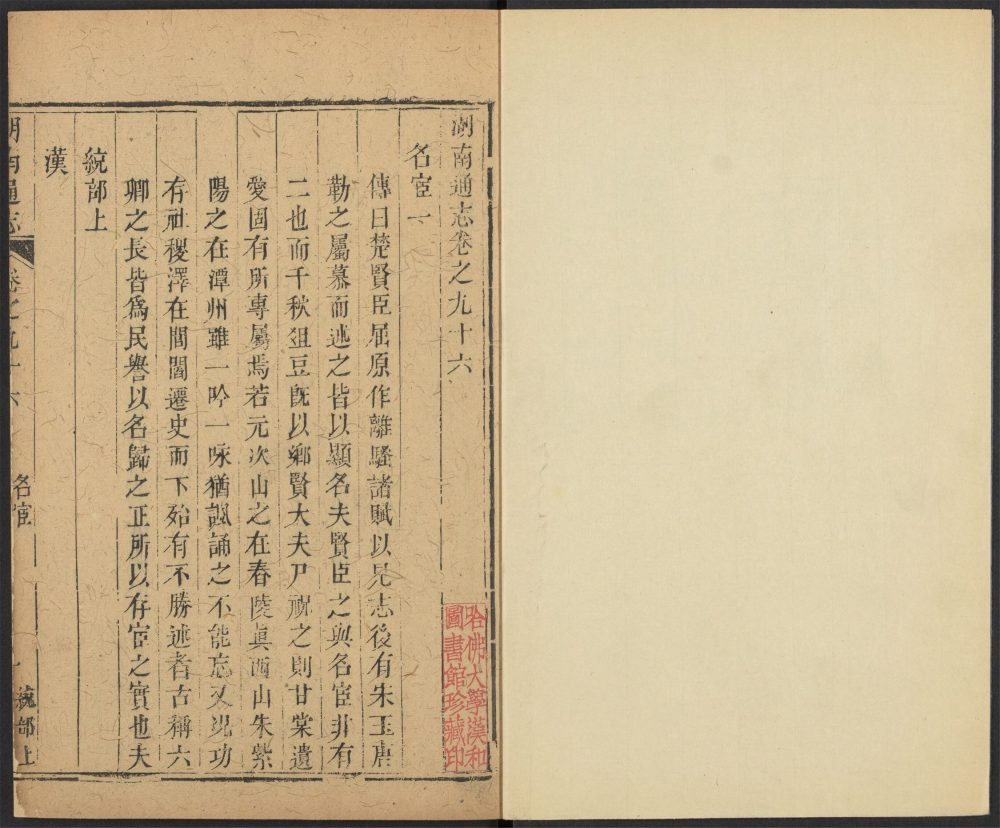 湖南通志卷之九十六
名宦一
傳曰楚賢臣屈原作離騷諸賦以見志後有宋玉唐
勒之屬慕而述之皆以顯名夫賢臣之與名宦非有
二也而千秋俎豆旣以鄉賢大夫尸祝之則甘棠遺
愛固有所專屬焉若元次山之在舂陵眞西山朱紫
陽之在潭州雖一吟一咏猶諷誦之不能忘又況功
存社稷澤在閭閻遷史而下殆有不勝述者古稱六
卿之長皆爲民譽以名歸之正所以存宦之實也夫
統部上
漢
湖南通志
卷之九十六
名宦
一
統部上
哈佛大學漢和
圖書館珍藏印